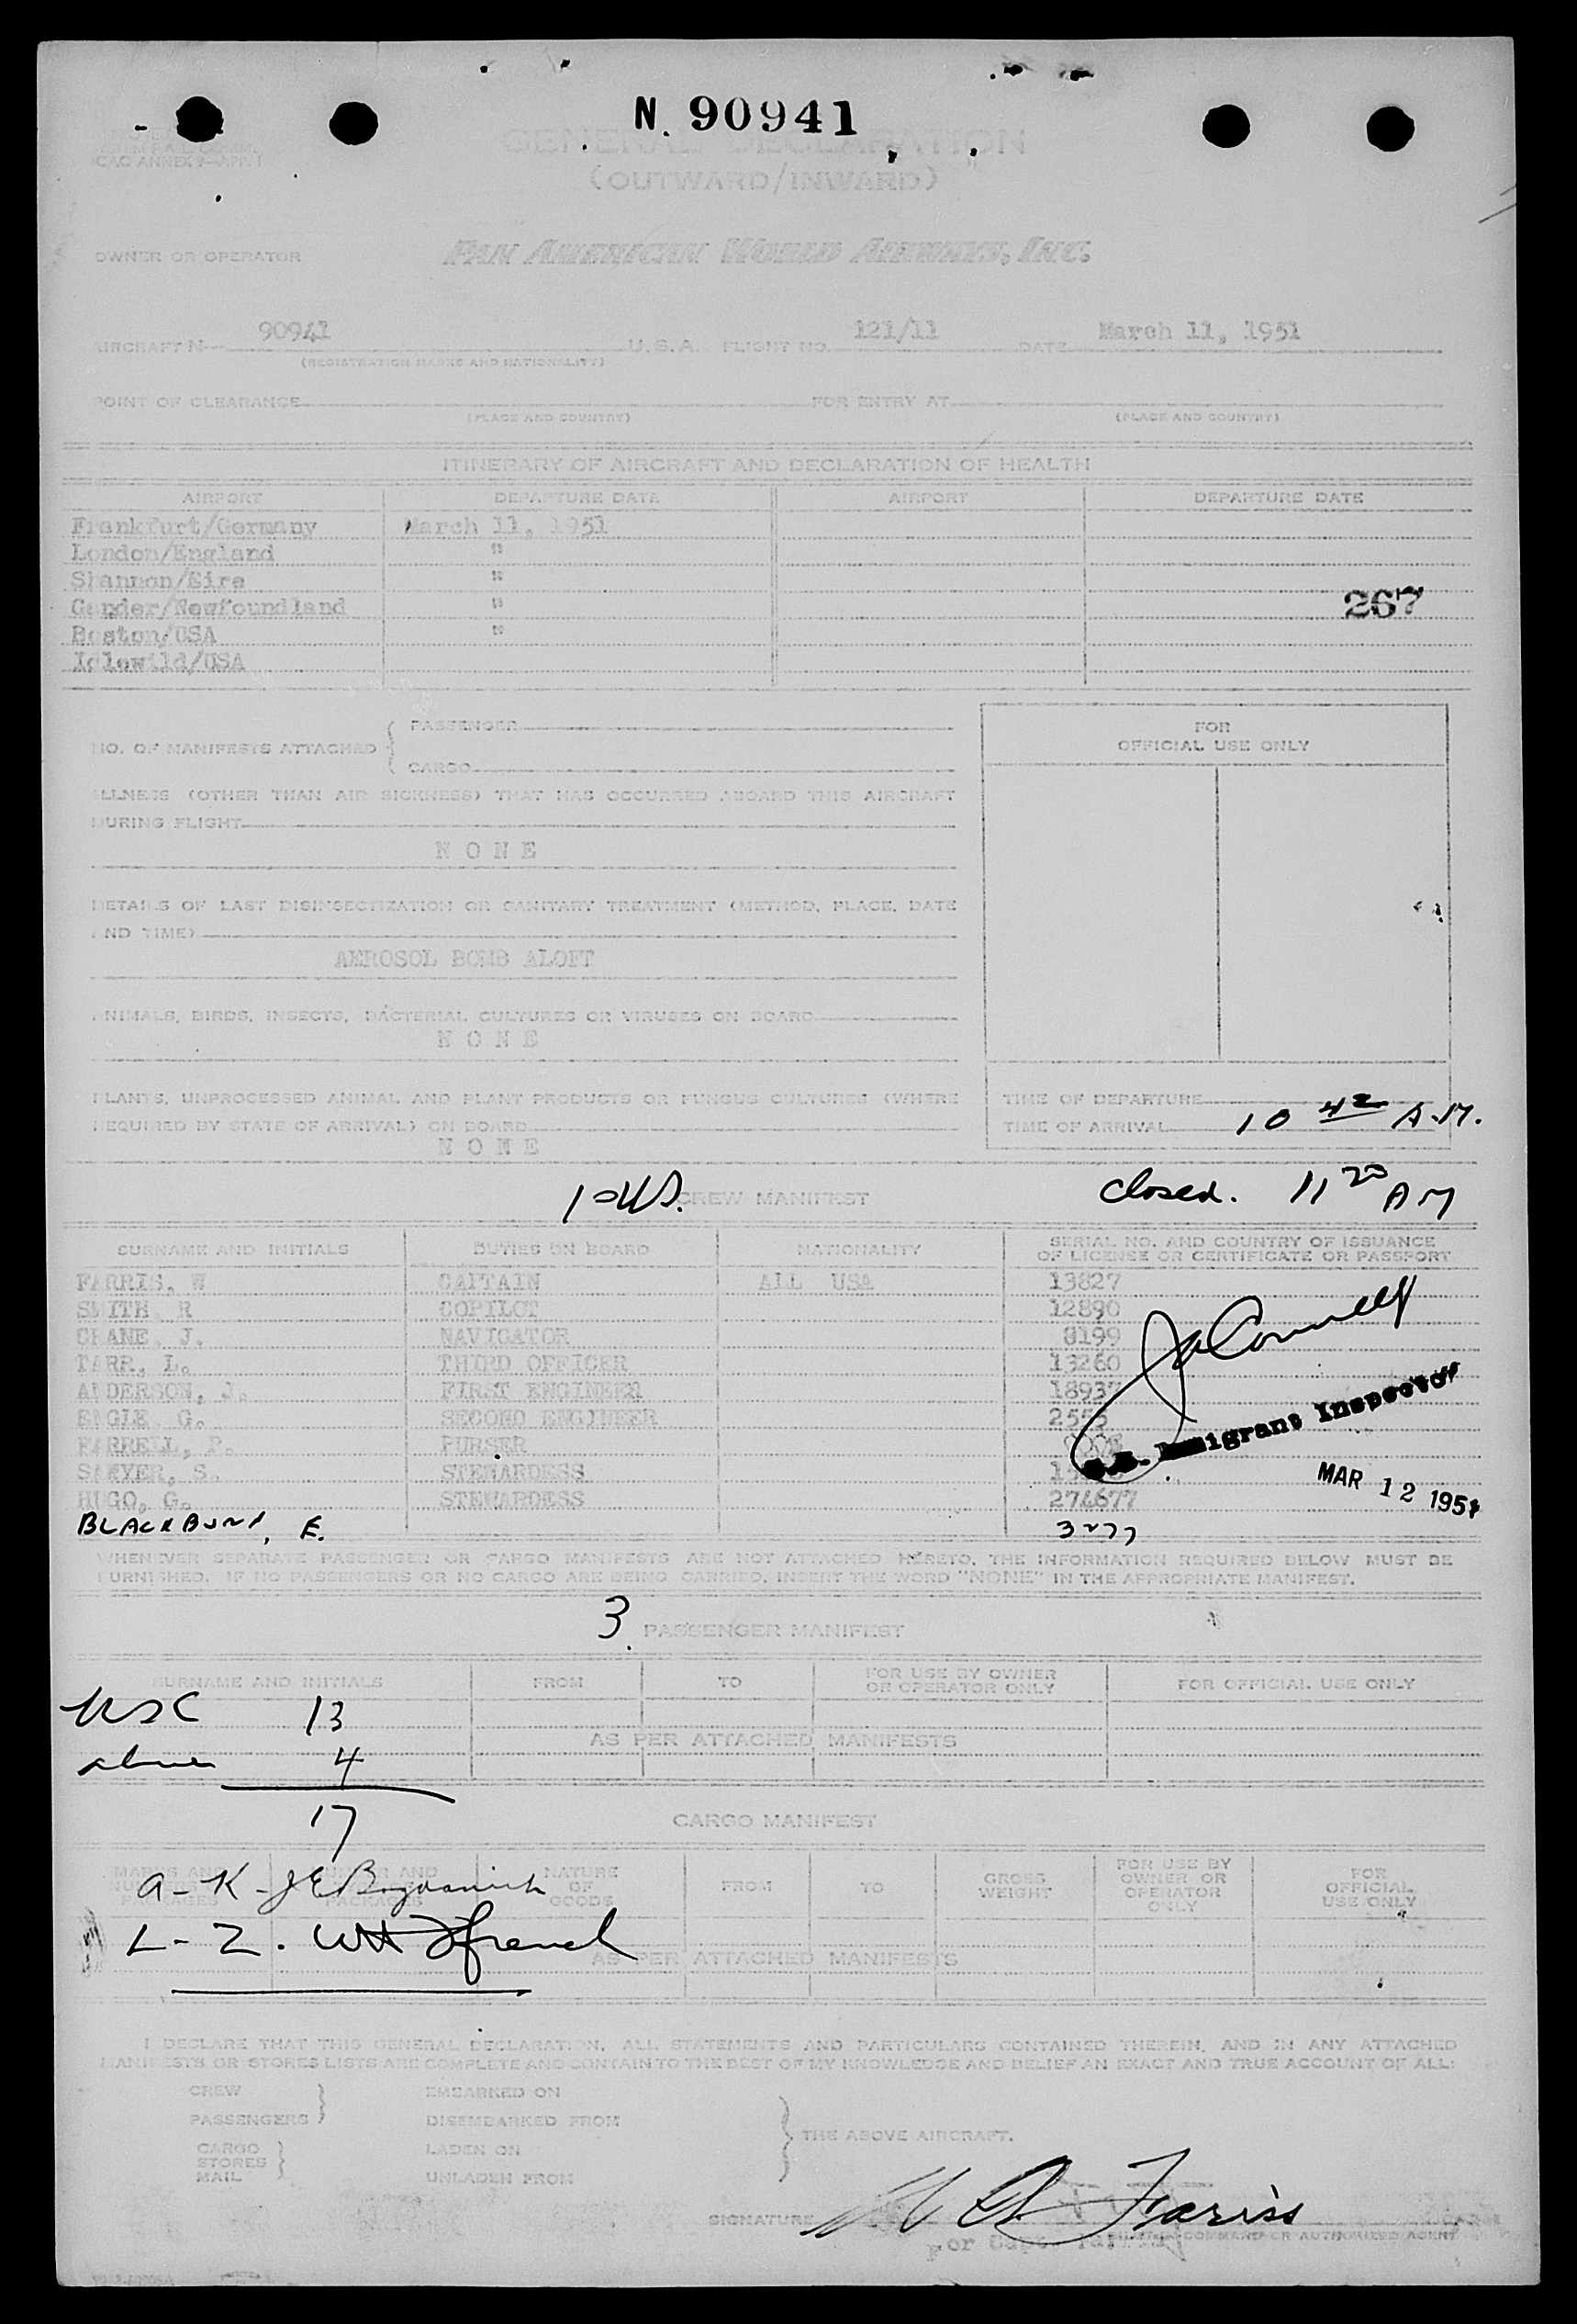 N. 90941
GENERAL DECLARATION
(OUTWARD/INWARD)
ICAO ANNEX 9—APP. 1
OWNER OR OPERATOR PAN AMERICAN WORLD AIRWAYS, INC.
AIRCRAFT N— 90941 U.S.A. FLIGHT NO. 121/11 DATE March 11, 1951
(REGISTRATION MARKS AND NATIONALITY)
POINT OF CLEARANCE FOR ENTRY AT
(PLACE AND COUNTRY) (PLACE AND COUNTRY)
ITINERARY OF AIRCRAFT AND DECLARATION OF HEALTH
AIRPORT DEPARTURE DATE AIRPORT DEPARTURE DATE
Frankfurt/Germany March 11, 1951
London/England "
Shannon/Eire "
Gander/Newfoundland " 267
Boston/USA "
Idlewild/USA
NO. OF MANIFESTS ATTACHED { PASSENGER
CARGO
FOR
OFFICIAL USE ONLY
ILLNESS (OTHER THAN AIR SICKNESS) THAT HAS OCCURRED ABOARD THIS AIRCRAFT
DURING FLIGHT
N O N E
DETAILS OF LAST DISINSECTIZATION OR SANITARY TREATMENT (METHOD, PLACE, DATE
AND TIME)
AEROSOL BOMB ALOFT
ANIMALS, BIRDS, INSECTS, BACTERIAL CULTURES OR VIRUSES ON BOARD
N O N E
PLANTS, UNPROCESSED ANIMAL AND PLANT PRODUCTS OR FUNGUS CULTURES (WHERE
REQUIRED BY STATE OF ARRIVAL) ON BOARD
N O N E
TIME OF DEPARTURE
TIME OF ARRIVAL 10 42 A.M.
CREW MANIFEST closed. 11 20 AM
SURNAME AND INITIALS DUTIES ON BOARD NATIONALITY SERIAL NO. AND COUNTRY OF ISSUANCE
OF LICENSE OR CERTIFICATE OR PASSPORT
FARRIS, W CAPTAIN ALL USA 13827
SMITH, R COPILOT 12890
CRANE, J. NAVIGATOR 8199
TARR, L. THIRD OFFICER 13260
ANDERSON, J. FIRST ENGINEER 18937
ENGLE, G. SECOND ENGINEER 2555
FARRELL, P. PURSER
SAWYER, S. STEWARDESS
HUGO, G. STEWARDESS 274677
BLACKBURN, E. 3277
U.S. Immigrant Inspector
MAR 12 1951
WHENEVER SEPARATE PASSENGER OR CARGO MANIFESTS ARE NOT ATTACHED HERETO, THE INFORMATION REQUIRED BELOW MUST BE
FURNISHED. IF NO PASSENGERS OR NO CARGO ARE BEING CARRIED, INSERT THE WORD "NONE" IN THE APPROPRIATE MANIFEST.
3 PASSENGER MANIFEST
SURNAME AND INITIALS FROM TO FOR USE BY OWNER
OR OPERATOR ONLY FOR OFFICIAL USE ONLY
USC 13
AS PER ATTACHED MANIFESTS
aliens 4
17
CARGO MANIFEST
MARKS AND
NUMBERS ON
PACKAGES NUMBER AND
PACKAGES NATURE
OF
GOODS FROM TO GROSS
WEIGHT FOR USE BY
OWNER OR
OPERATOR
ONLY FOR
OFFICIAL
USE ONLY
A - K -
L - Z. WH French
AS PER ATTACHED MANIFESTS
I DECLARE THAT THIS GENERAL DECLARATION, ALL STATEMENTS AND PARTICULARS CONTAINED THEREIN, AND IN ANY ATTACHED
MANIFESTS OR STORES LISTS ARE COMPLETE AND CONTAIN TO THE BEST OF MY KNOWLEDGE AND BELIEF AN EXACT AND TRUE ACCOUNT OF ALL:
CREW EMBARKED ON
PASSENGERS } DISEMBARKED FROM
THE ABOVE AIRCRAFT.
CARGO LADEN ON
STORES }
MAIL UNLADEN FROM
SIGNATURE W A Farriss
COMMANDER OR AUTHORIZED AGENT
For Capt.